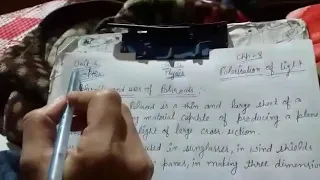 Unit-
Chp-8
Physics
Polarisation of light
and use of Polaroids :-
Polaroid is a thin and large sheet of a
material capable of producing a plane
light of large cross section.
used in sunglasses, in wind shields
panes, in making three dimension